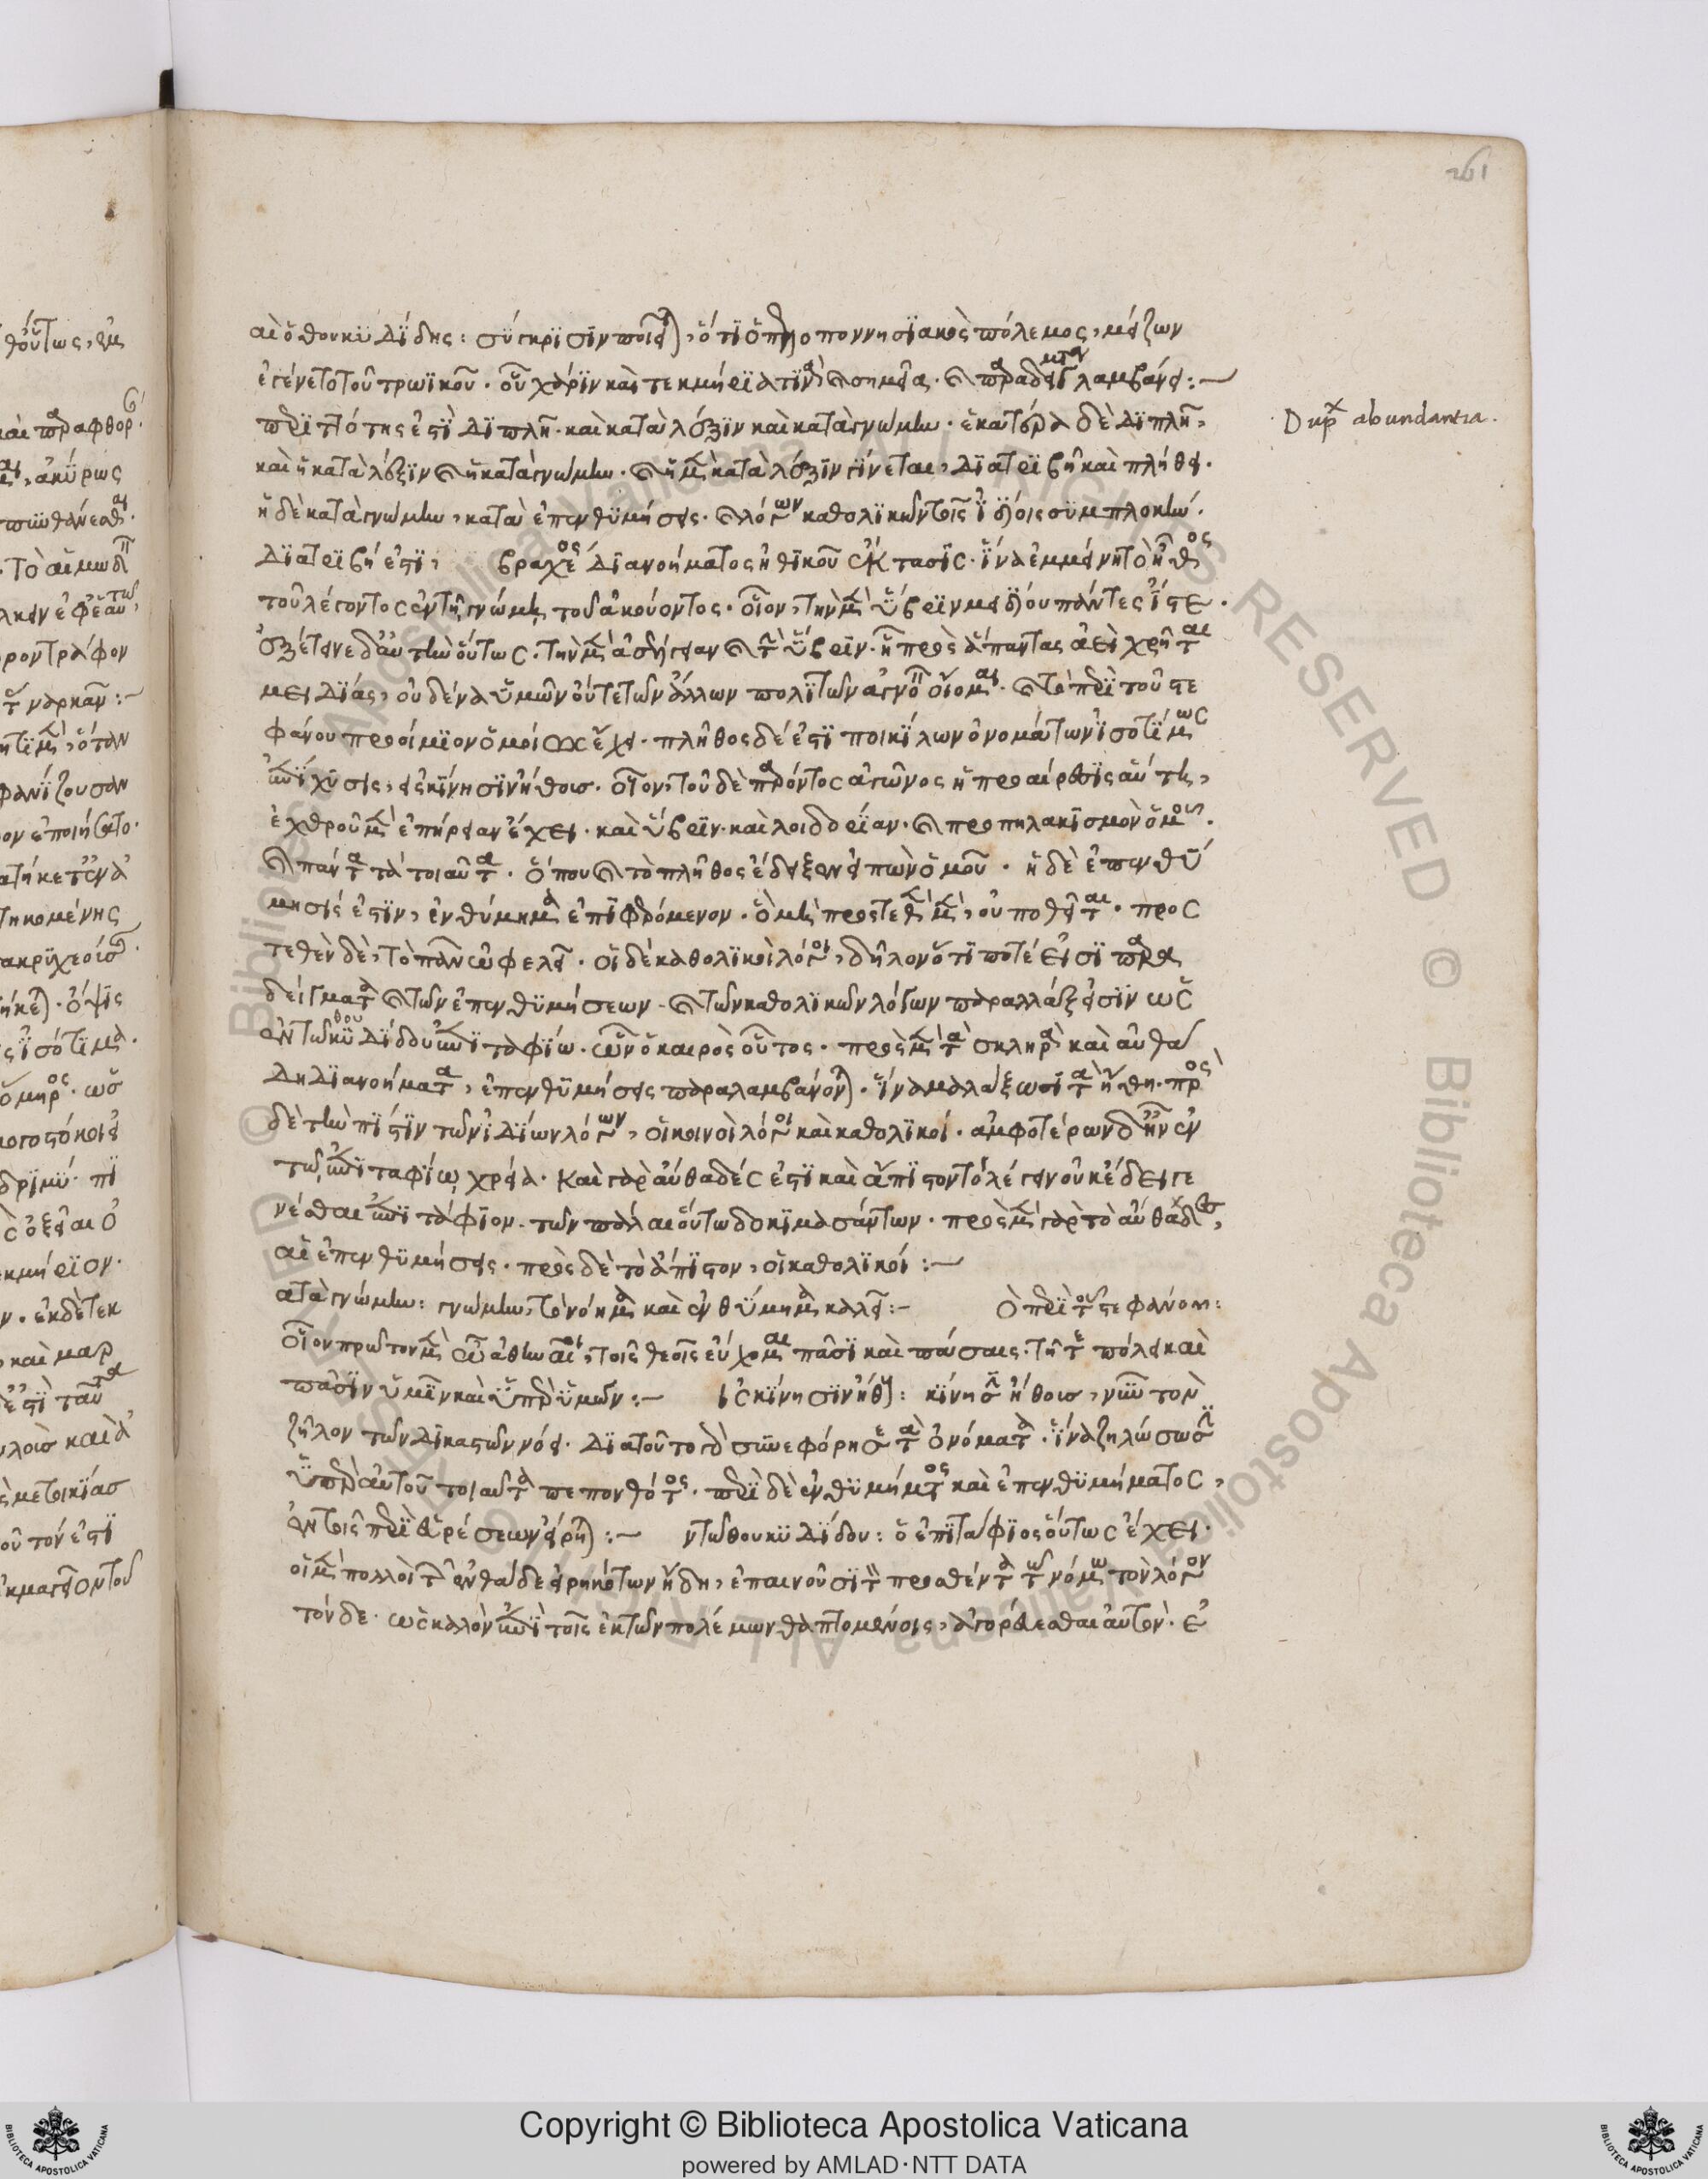 261
αὶ ὁ θουκυδίδης: σύγκρισιν ποιεῖται, ὅτι ὁ πελοποννησιακὸς πόλεμος, μείζων
ἐγένετο τοῦ τρωϊκοῦ. οὗ χάριν καὶ τεκμήρια τινὰ καὶ σημεῖα. καὶ παραδείγματα λαμβάνει:
περιττότης ἐστὶ διπλῆ. καὶ κατὰ λέξιν καὶ κατὰ γνώμην. ἑκατέρα δὲ διπλῆ,
Dupx abundantia.
καὶ ἡ κατὰ λέξιν καὶ ἡ κατὰ γνώμην. καὶ ἡ μὲν κατὰ λέξιν γίνεται, διατριβῆ καὶ πλήθει.
ἡ δὲ κατὰ γνώμην, κατὰ ἐπενθυμήσεις. καὶ λόγων καθολικῶν τοῖς ἰδίοις συμπλοκήν.
διατριβή ἐστι, βραχέος διανοήματος ἠθικοῦ ἔκτασις. ἵνα ἐμμείνη τὸ ἦθος
τοῦ λέγοντος ἐν τῆ γνώμη τοῦ ἀκούοντος. οἷον, τὴν μὲν ὕβριν μειδίου πάντες ἴστε.
ἐξέτεινε δ' αὐτὴν οὕτως. τὴν μὲν ἀσέλγειαν καὶ τὴν ὕβριν. ἧ πρὸς ἅπαντας ἀεὶ χρῆται
μειδίας, οὐδένα ὑμῶν οὔτε τῶν ἄλλων πολιτῶν ἀγνοεῖν οἴομαι. καὶ τὸ περὶ τοῦ στε
φάνου προοίμιον ὁμοίως ἔχει. πλῆθος δέ ἐστι ποικίλων ὀνομάτων ἰσοτίμως
ἐπίχυσις, εἰς κίνησιν ἤθους. οἷον, τοῦ δὲ παρόντος ἀγῶνος ἡ προαίρεσις αὕτη,
ἐχθροῦ μὲν ἐπήρειαν ἔχει. καὶ ὕβριν. καὶ λοιδορίαν. καὶ προπηλακισμὸν ὁμοῦ.
καὶ πάντα τὰ τοιαῦτα. ὅπου καὶ τὸ πλῆθος ἔδειξεν εἰπὼν ὁμοῦ. ἡ δὲ ἐπενθύ
μησίς ἐστιν, ἐνθύμημα ἐπιφερόμενον. ὃ μὴ προστεθὲν μὲν, οὐ ποθεῖται. προσ
τεθὲν δὲ, τὸ πᾶν ὠφελεῖ. οἱ δὲ καθολικοὶ λόγοι, δῆλον ὅτι ποτέ εἰσι παρα
δείγματα καὶ τῶν ἐπενθυμήσεων. καὶ τῶν καθολικῶν λόγων παραλλάξεσιν ὡς
ἐν τῶ θουκυδίδου ἐπιταφίω. ὧν ὁ καιρὸς οὗτος. πρὸς μὲν τὰ σκληρὰ καὶ αὐθά
δη διανοήματα, ἐπενθυμήσεις παραλαμβάνονται. ἵνα μαλάξωσι τὰ ἤθη. πρὸς
δὲ τὴν πίστιν τῶν ἰδίων λόγων, οἱ κοινοὶ λόγοι καὶ καθολικοί. ἀμφοτέρων δ' ἦν ἐν
τῶ ἐπιταφίω χρεία. καὶ γὰρ αὔθαδές ἐστι καὶ ἄπιστον τὸ λέγειν οὐκ ἔδει γε
νέσθαι ἐπιτάφιον. τῶν πάλαι οὕτω δοκιμασάντων. πρὸς μὲν γὰρ τὸ αὔθαδες,
αἱ ἐπενθυμήσεις. πρὸς δὲ τὸ ἄπιστον, οἱ καθολικοί:
ατὰ γνώμην: γνώμην, τὸ νόημα καὶ ἐνθύμημα καλεῖ: Ὁ περὶ τοῦ στεφάνου:
οἷον πρῶτον μὲν ὦ ἀθηναῖοι, τοῖς θεοῖς εὔχομαι πᾶσι καὶ πάσαις. τῆ τε πόλει καὶ
πᾶσιν ὑμῖν καὶ ὑπὲρ ὑμῶν: ις κίνησιν ἤθους: κίνησιν ἤθους, νῦν τὸν
ζῆλον τῶν δικαστῶν νόει. διὰ τοῦτο γὰρ συνεφόρησε τὰ ὀνόματα. ἵνα ζηλώσωσιν
ὑπὲρ αὐτοῦ τοιαῦτα πεπονθότος. περὶ δὲ ἐνθυμήματος καὶ ἐπενθυμήματος,
ἐν τοῖς περὶ εὑρέσεων εἴρηται: ν τῶ θουκυδίδου: ὁ ἐπιτάφιος οὕτως ἔχει.
οἱ μὲν πολλοὶ τῶν ἐνθάδε εἰρηκότων ἤδη, ἐπαινοῦσι τὸν προσθέντα τῶ νόμω τὸν λόγον
τόνδε. ὡς καλὸν ἐπὶ τοῖς ἐκ τῶν πολέμων θαπτομένοις, ἀγορεύεσθαι αὐτόν. ἐ
Copyright © Biblioteca Apostolica Vaticana
powered by AMLAD·NTT DATA